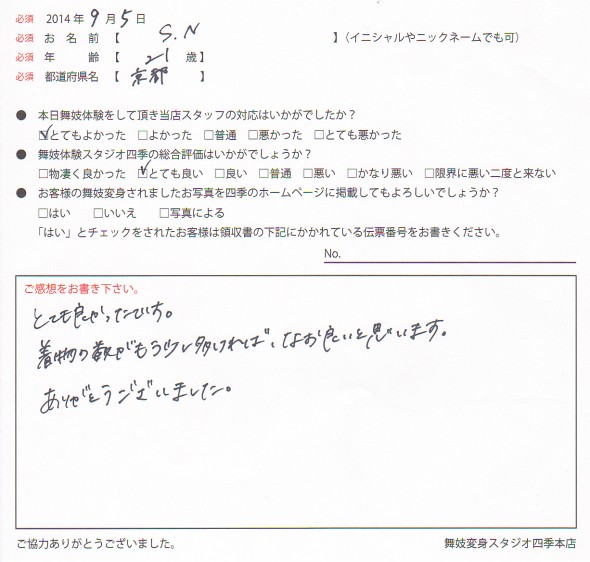 必須 2014年 9月 5日
必須 お名前【 S.N 】（イニシャルやニックネームでも可）
必須 年齢【 21 歳】
必須 都道府県名【 京都 】
● 本日舞妓体験をして頂き当店スタッフの対応はいかがでしたか？
☑とてもよかった □よかった □普通 □悪かった □とても悪かった
● 舞妓体験スタジオ四季の総合評価はいかがでしょうか？
□物凄く良かった ☑とても良い □良い □普通 □悪い □かなり悪い □限界に悪い二度と来ない
● お客様の舞妓変身されましたお写真を四季のホームページに掲載してもよろしいでしょうか？
□はい □いいえ □写真による
「はい」とチェックをされたお客様は領収書の下記にかかれている伝票番号をお書きください。
No.
ご感想をお書き下さい。
とても良かったです。
着物の数がもう少し多ければ、なお良いと思います。
ありがとうございました。
ご協力ありがとうございました。 舞妓変身スタジオ四季本店